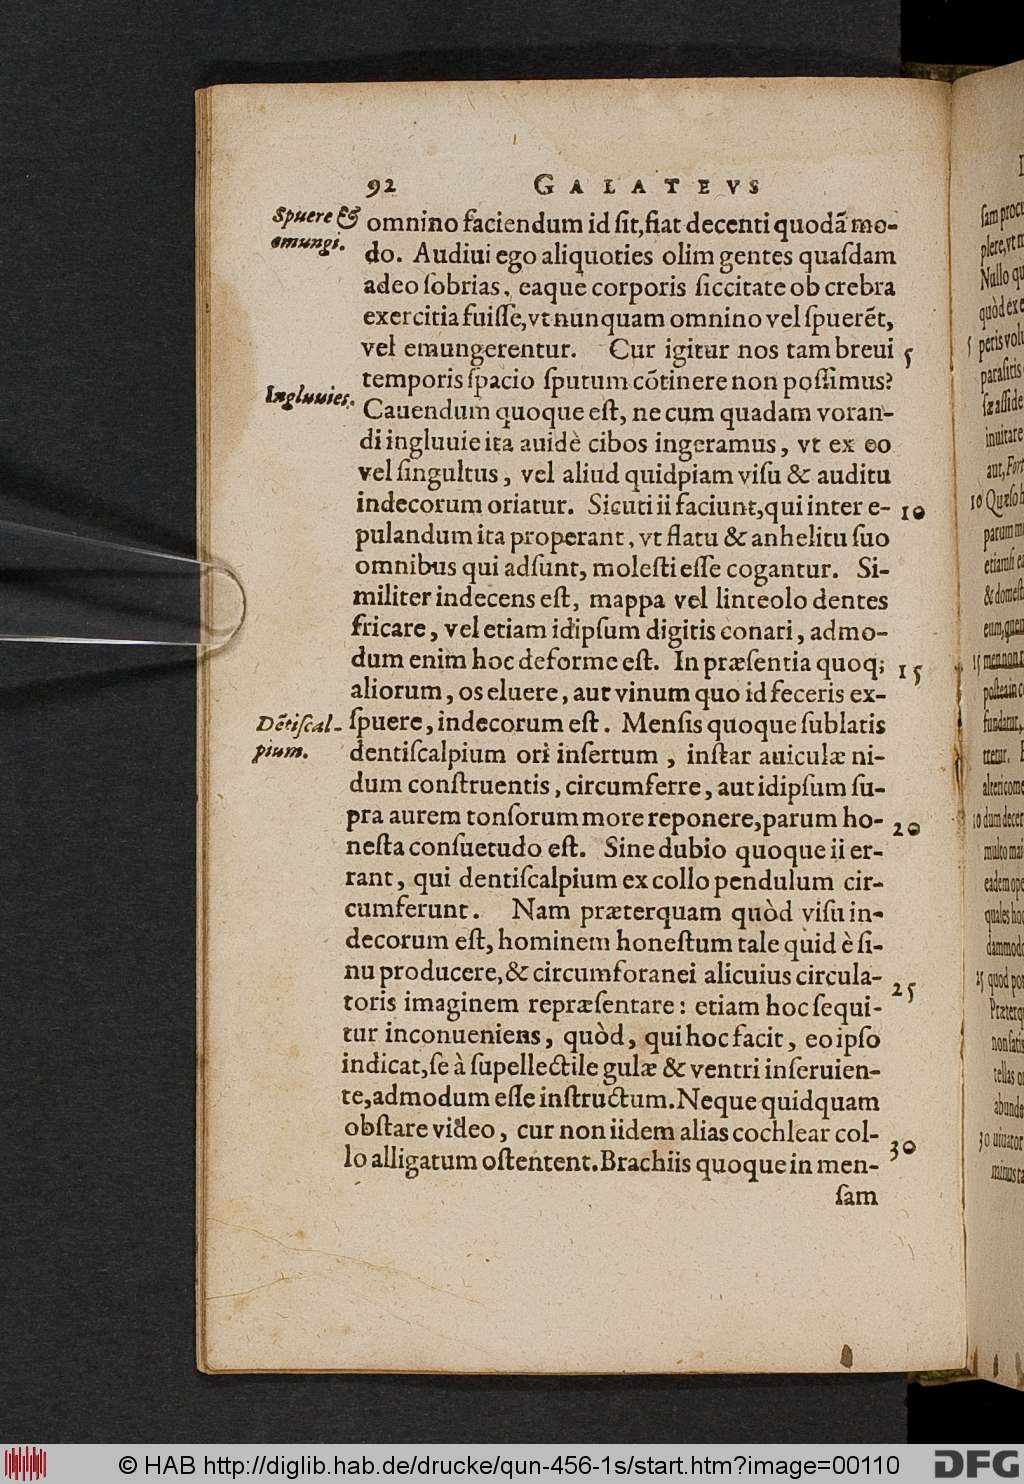 92 GALATEVS
Spuere &
emungi.
omnino faciendum id ſit, fiat decenti quodã mo-
do. Audiui ego aliquoties olim gentes quaſdam
adeo ſobrias, eaque corporis ſiccitate ob crebra
exercitia fuiſſe, vt nunquam omnino vel ſpuerẽt,
vel emungerentur. Cur igitur nos tam breui 5
temporis ſpacio ſputum cõtinere non poſſimus?
Ingluuies.
Cauendum quoque eſt, ne cum quadam voran-
di ingluuie ita auidè cibos ingeramus, vt ex eo
vel ſingultus, vel aliud quidpiam viſu & auditu
indecorum oriatur. Sicuti ii faciunt, qui inter e- 10
pulandum ita properant, vt flatu & anhelitu ſuo
omnibus qui adſunt, moleſti eſſe cogantur. Si-
militer indecens eſt, mappa vel linteolo dentes
fricare, vel etiam idipſum digitis conari, admo-
dum enim hoc deforme eſt. In præſentia quoq; 15
aliorum, os eluere, aut vinum quo id feceris ex-
Dẽtiſcal-
pium.
ſpuere, indecorum eſt. Menſis quoque ſublatis
dentiſcalpium ori inſertum, inſtar auiculæ ni-
dum conſtruentis, circumferre, aut idipſum ſu-
pra aurem tonſorum more reponere, parum ho- 20
neſta conſuetudo eſt. Sine dubio quoque ii er-
rant, qui dentiſcalpium ex collo pendulum cir-
cumferunt. Nam præterquam quòd viſu in-
decorum eſt, hominem honeſtum tale quid è ſi-
nu producere, & circumforanei alicuius circula- 25
toris imaginem repræſentare: etiam hoc ſequi-
tur inconueniens, quòd, qui hoc facit, eo ipſo
indicat, ſe à ſupellectile gulæ & ventri inſeruien-
te, admodum eſſe inſtructum. Neque quidquam
obſtare video, cur non iidem alias cochlear col-
lo alligatum oſtentent. Brachiis quoque in men- 30
ſam
ſam procu
plere, vt n
Nullo qu
quòd exe
5 peris volu
paraſitis
ſæ aſſide
inuitare
aut, Fort
10 Quæſo h
parum m
etiamſi ea
& domeſt
eum, quem
15 men non r
poſtea in c
fundatur,
tretur.
alteri come
20 dum decer
multo mai
eadem ope
quales hoc
dammodo
25 quod pot
Præterq
non ſatis
tellas
abunda
30 uiuator
minus ra
© HAB http://diglib.hab.de/drucke/qun-456-1s/start.htm?image=00110
DFG